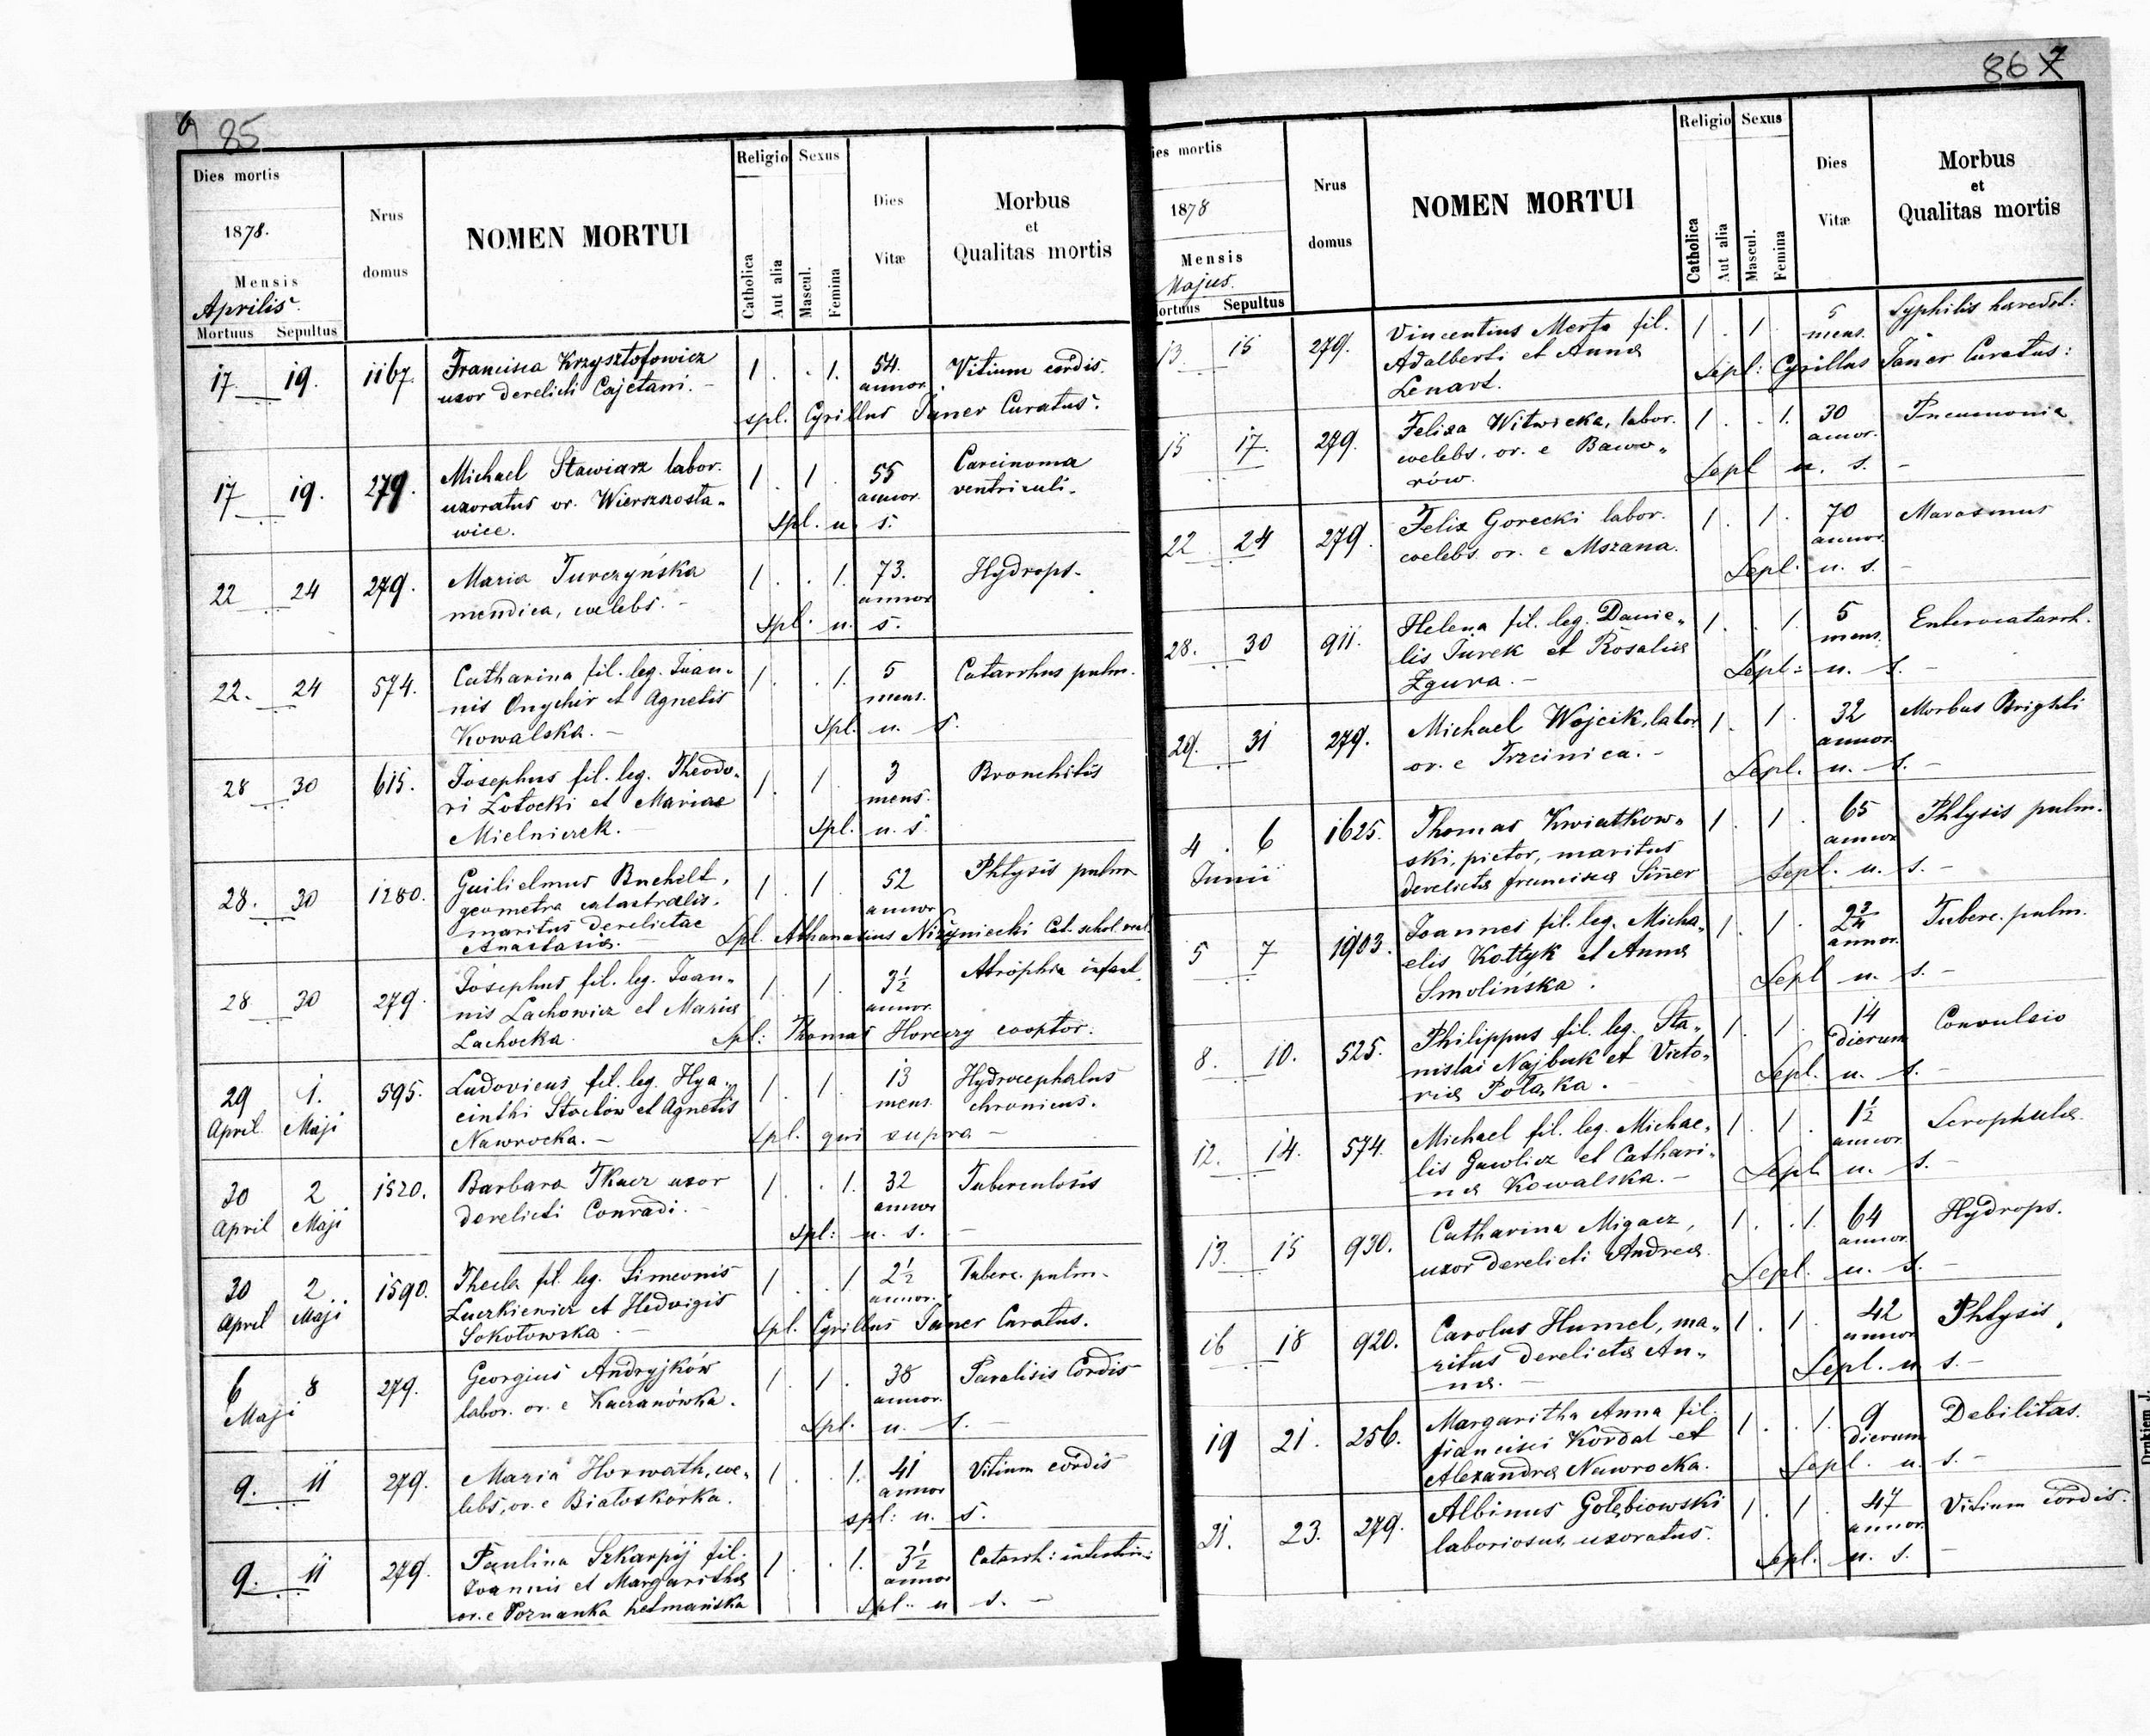 6 85
Dies mortis
1878.
Mensis
Aprilis
Mortuus Sepultus
Nrus
domus
NOMEN MORTUI
Religio
Catholica
Aut alia
Sexus
Mascul.
Femina
Dies
Vitæ
Morbus
et
Qualitas mortis
17 19. 1167. Francisca Krzysztofowicz 1 . . 1. 54. Vitium cordis.
uxor derelicti Cajetani. – annor.
spl. Cyrillus Janer Curatus.
17 19. 279. Michael Stawiarz labor. 1. 1 55 Carcinoma
uxoratus or. Wierszosta„ annor. ventriculi.
wice. spl. u. s.
22 24 279. Maria Turczyńska 1. . 1. 73. Hydrops.
mendica, coelebs. – annor.
spl. u. s.
22. 24 574. Catharina fil. leg. Joan„ 1. . 1. 5 Catarrhus pulm.
nis Onychir et Agnetis mens.
Kowalska. – spl. u. s.
28 30 615. Josephus fil. leg. Theodo„ 1. 1 3 Bronchitis
ri Łotocki et Mariae mens.
Mielniczek. – spl. u. s.
28. 30 1280. Guilielmus Buchelt, 1. 1 52 Phtysis pulm
geometra catastralis. annor
maritus derelictae
Anastasiæ. – spl. Athanasius Niżyniecki Cat. schol. real.
28 30 279. Josephus fil. leg. Joan„ 1. 1. 3½ Atrophia infant.
nis Lachowicz et Mariæ annor.
Lachocka. spl: Thomas Horeczy cooptor.
29 1. 595. Ludovicus fil. leg. Hya„ 1. 1. 13 Hydrocephalus
April Maji cinthi Stocłow et Agnetis mens. chronicus.
Nawrocka. – spl. qui supra –
30 2 1520. Barbara Tkacz uxor 1. . 1. 32 Tuberculosis
April Maji derelicti Conradi. – annor
spl: u. s. –
30 2 1590. Thecla fil. leg. Simeonis 1. . 1 2½ Tuberc. pulm.
April Maji Łuczkiewicz et Hedvigis annor.
Sokołowska. – spl. Cyrillus Janer Curatus.
6 8 279. Georgius Andryjków 1. 1. 38 Paralisis Cordis
Maji labor. or. e Kaczanówka. annor.
spl. u. s. –
9. 11 279. Maria Horwath, coe„ 1. . 1. 41 Vitium cordis
lebs, or. e Białoskórka. annor
spl: u. s.
9. 11 279. Paulina Szkarpij fil. 1. . 1. 3½ Catarrh: intestin:
Joannis et Margarithæ annor
or. e Poznanka hetmańska spl. u s. –
86 7
ies mortis
1878
Mensis
Majus.
ortuus Sepultus
Nrus
domus
NOMEN MORTUI
Religio
Catholica
Aut alia
Sexus
Mascul.
Femina
Dies
Vitæ
Morbus
et
Qualitas mortis
13. 15 279. Vincentius Merta fil. 1. 1. 5 Syphilis haredit:
Adalberti et Annæ mens.
Lenart. Sepl: Cyrillus Janer Curatus:
15 17. 279. Felixa Witwicka, labor. 1. . 1. 30 Pneumonia
coelebs. or. e Bawo„ annor.
rów. Sepl u. s. –
22 24 279. Felix Gorecki labor. 1. 1. 70 Marasmus
coelebs. or. e Mszana. annor.
Sepl. u. s. –
28. 30 911. Helena fil. leg. Danie„ 1. . 1. 5 Enterocatarrh.
lis Turek et Rosaliæ mens.
Zgura. – Sepl: u. s. –
29. 31 279. Michael Wojcik, labor 1. 1. 32 Morbus Brighti
or. e Trzcinica. – annor.
Sepl. u. s. –
4. 6 1625. Thomas Kwiatkow„ 1. 1. 65 Phtysis pulm.
Junii ski, pictor, maritus annor
derelictæ Franciscæ Siner Sepl. u. s. –
5 7 1903. Joannes fil. leg. Micha„ 1. 1. 2¾ Tuberc. pulm.
elis Kołtyk et Annæ annor.
Smolińska. Sepl u. s. –
8. 10. 525. Philippus fil. leg. Sta„ 1. 1. 14 Convulsio
nislai Najbuk et Victo„ dierum
riæ Polaka. – Sepl. u. s. –
12. 14. 574. Michael fil. leg. Michae„ 1. 1. 1½ Scrophulæ
lis Gawlicz et Cathari„ annor.
næ Kowalska. – Sepl. u. s. –
13. 15 930. Catharina Migacz, 1. . 1. 64 Hydrops.
uxor derelicti Andreæ. annor.
Sepl. u. s. –
16 18 920. Carolus Humel, ma„ 1. 1. 42 Phtysis
ritus derelictæ An„ annor
næ. – Sepl. u s. –
19 21. 256. Margaritha Anna fil. 1. . 1. 9 Debilitas.
Francisci Kordal et dierum
Alexandræ Nawrocka. Sepl. u. s. –
21. 23. 279. Albinus Gołębiowski 1. 1. 47 Vitium cordis.
laboriosus, uxoratus. annor.
Sepl. u. s. –
Drukiem J.